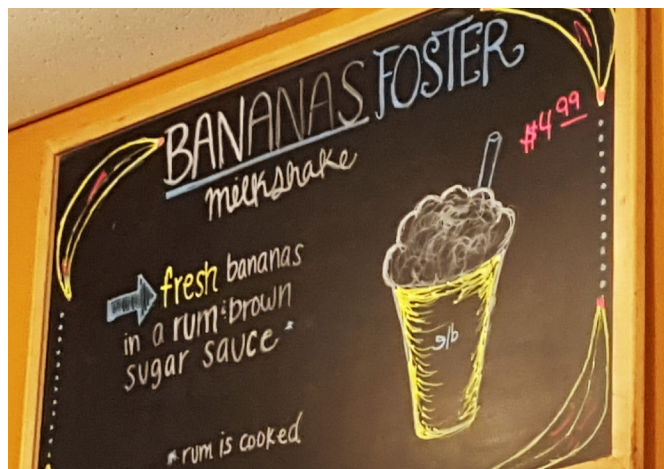 BANANAS FOSTER
milkshake
$4.99
fresh bananas
in a rum & brown
sugar sauce*
g/b
*rum is cooked